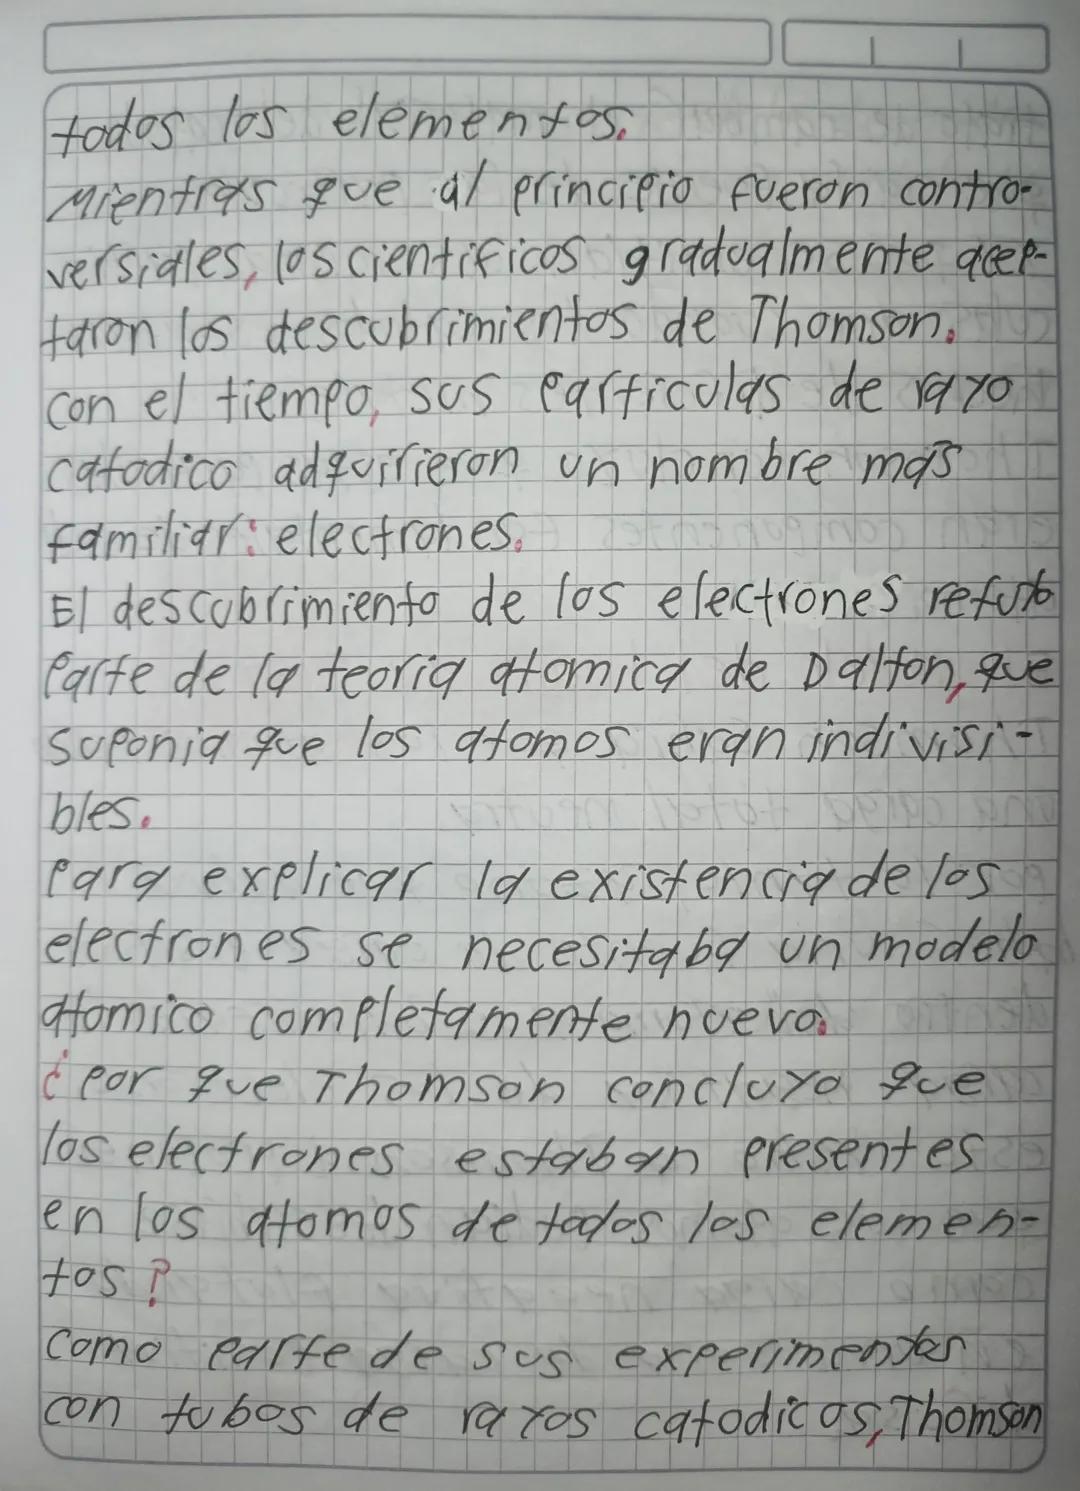 todos los elementos.
Mientras que al principio fueron contro-
versiales, los cientificos gradualmente acep-
taron los descubrimientos de Thomson.
con el tiempo, sus particulas de rayo
catodico adquirieron un nombre mas
familiar: electrones.
El descubrimiento de los electrones refuto
parte de la teoria atomica de Dalton, que
suponia que los atomos eran indivisi-
bles.
para explicar la existencia de los
electrones se necesitaba un modelo
atomico completamente nuevo.
¿por que Thomson concluyo que
los electrones estaban presentes
en los atomos de todos los elemen-
tos?
como parte de sus experimentos
con tubos de rayos catodicos, Thomson